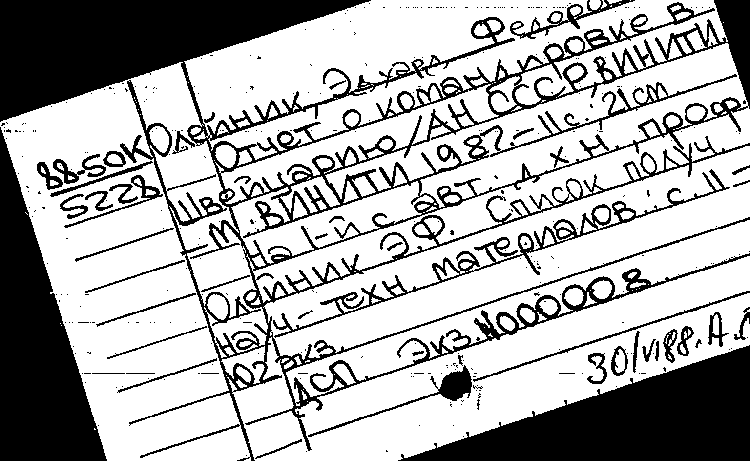 Олейник, Эдуард Федоро
88-50К
5228
Отчет о командировке в
Швейцарию / АН СССР, ВИНИТИ.
- М.: ВИНИТИ, 1987. - 11 с.; 21 см.
На 1-й с авт.: д.х.н., проф.
Олейник Э.Ф. Список получ.
науч.- техн. материалов: с. 11 -
102 экз.
ДСП. Экз. №000008.
30/VI 88. А.